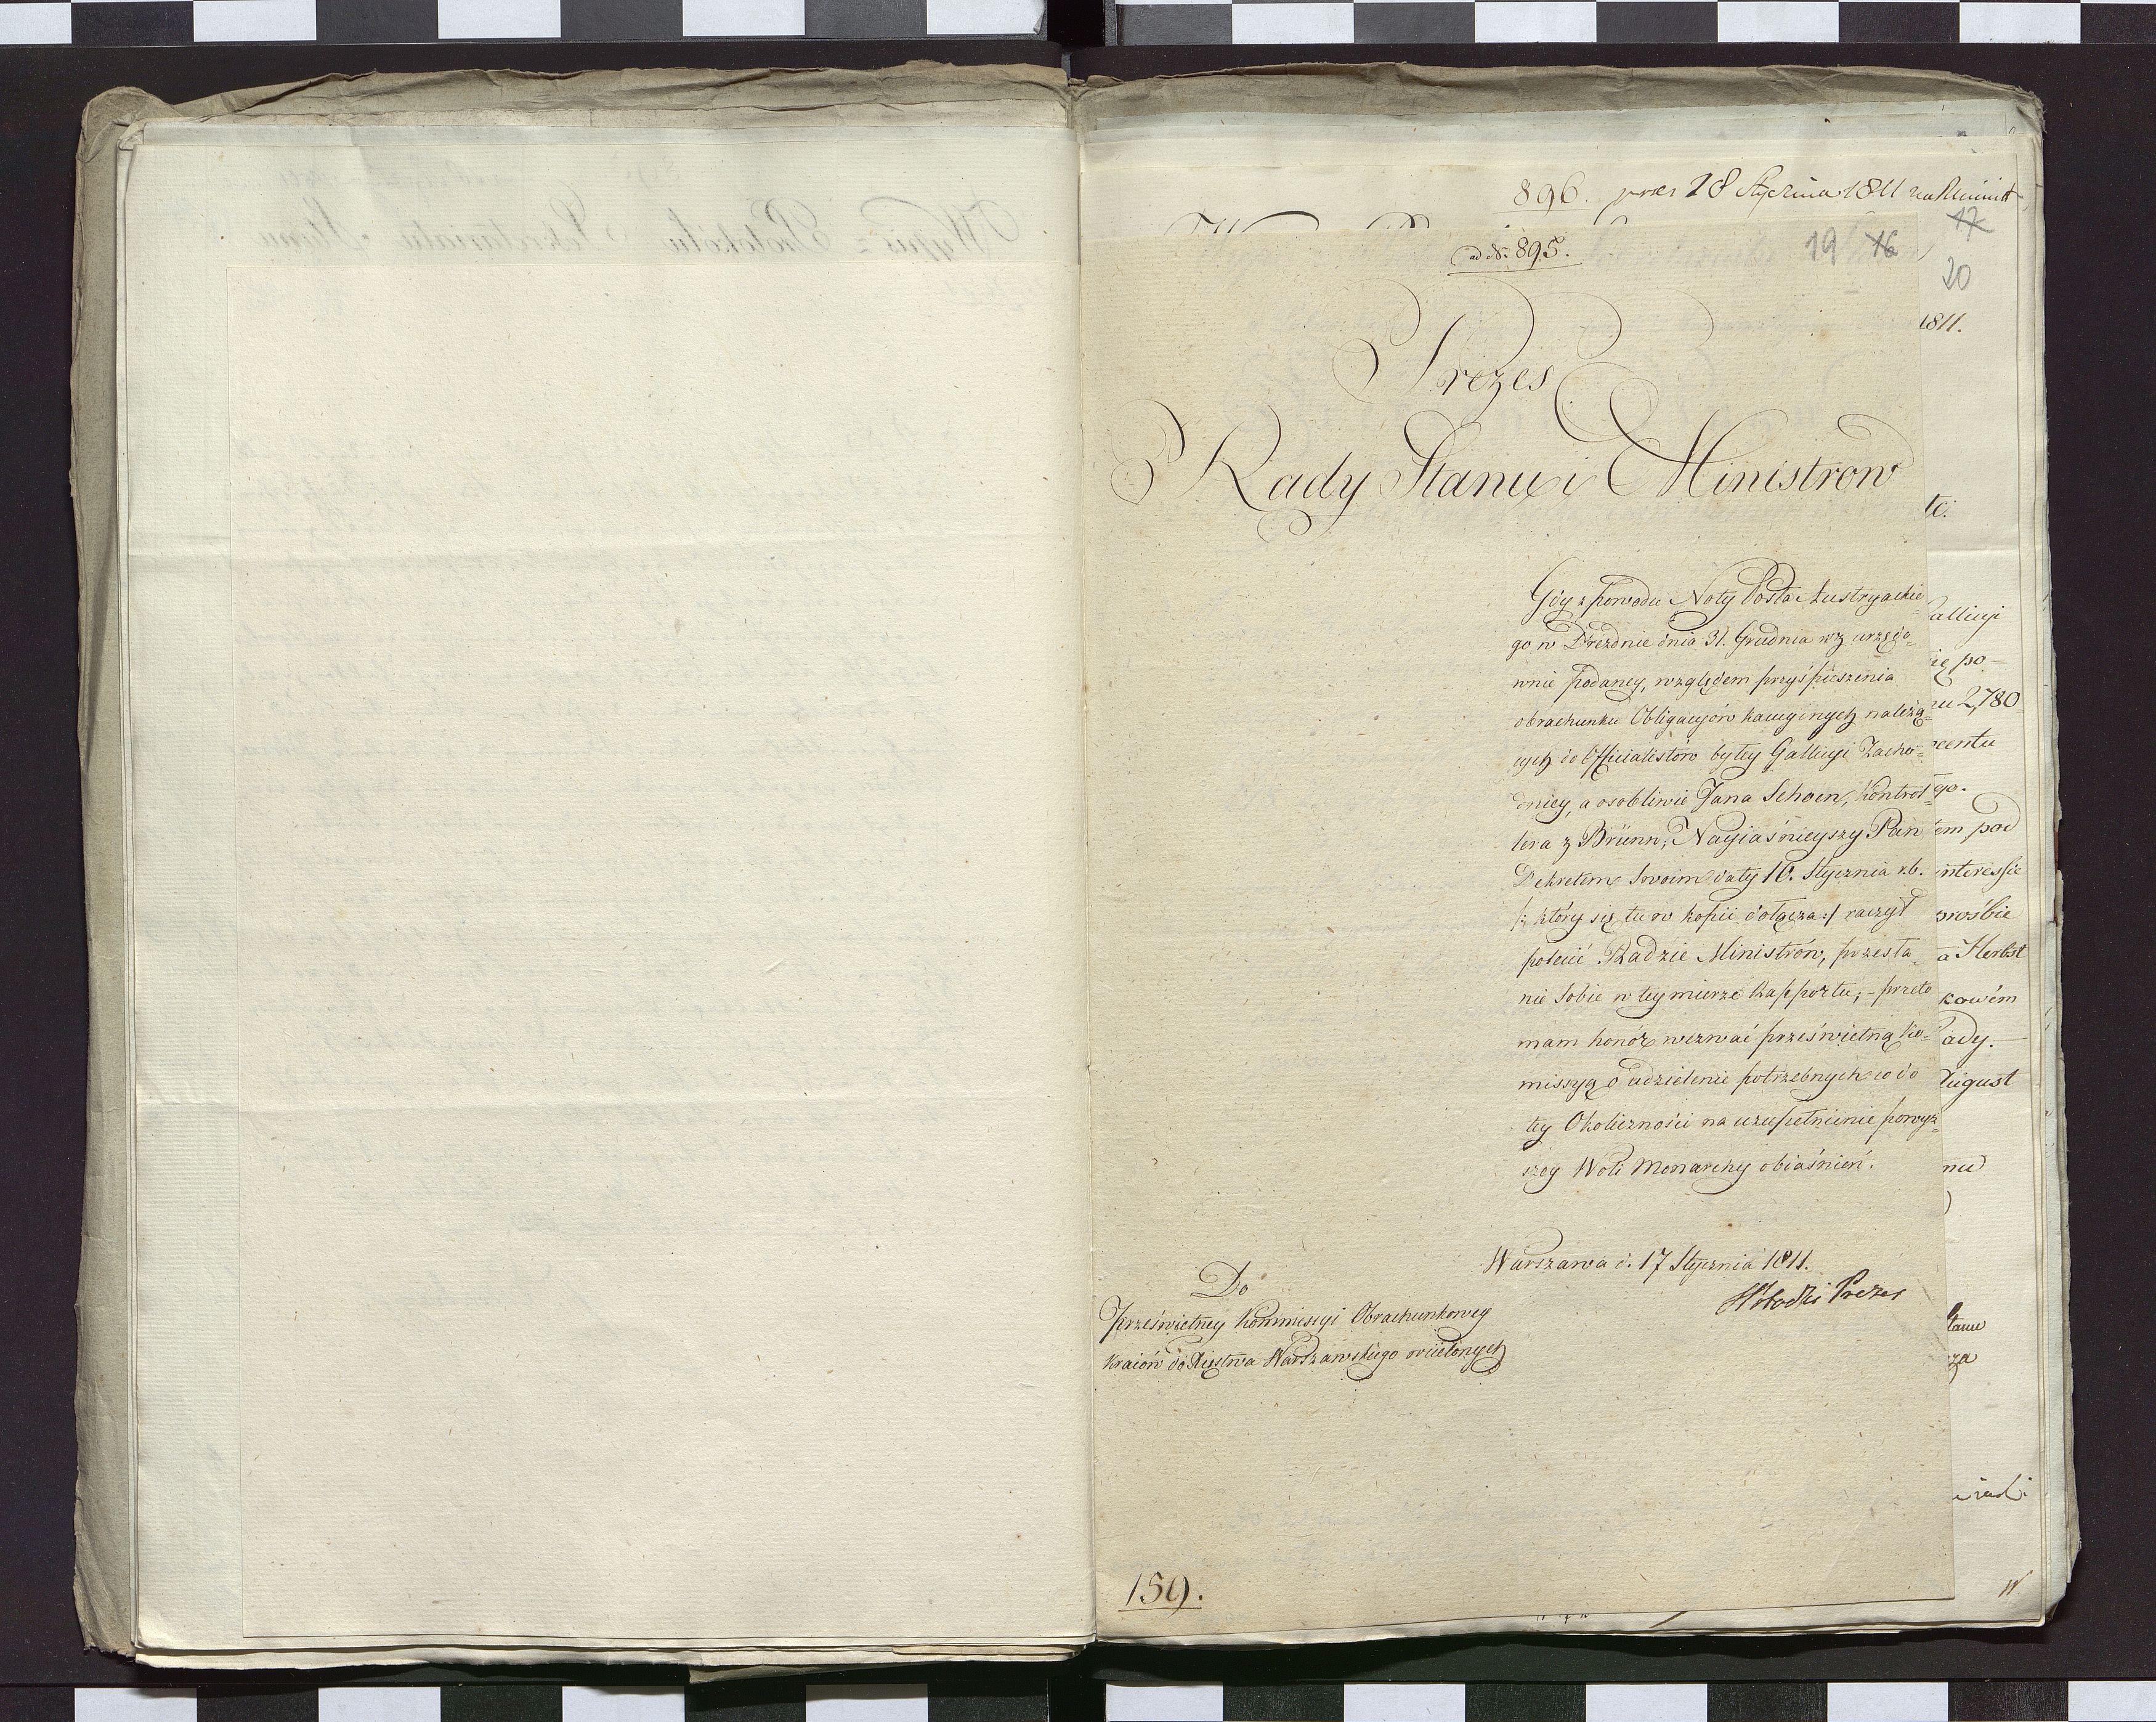 896. prez 28 Stycznia 1811
17
ad N: 895.
19 16
20
1811.
Prezes
Rady Stanu i Ministrow
te.
Gdy z powodu Noty Posła Austryackie=
go w Dreznie dnia 31. Grudnia r z urzędo=
wnie podaney, względem przyśpieszenia
obrachunku Obligacyów kaucyinych należą=
cych do Officialistów byłey Gallicyi Zacho=
dniey, a osobliwie Jana Schoen, Kontrol=
lera z Brünn, Nayiaśnieyszy Pan
Dekretem Swoim daty 10. Stycznia r.b.
/: który się tu w kopii dołącza :/ raczył
polecić Radzie Ministrów, przesła=
nie Sobie w tey mierze Rapportu; - przeto
mam honor wezwać prześwietną Ko=
missyą o udzielenie potrzebnych co do
tey Okoliczności na uzupełnienie powyż=
szey Woli Monarchy obiaśnień.
Warszawa d. 17 Stycznia 1811.
Prezes
Do
Prześwietney Kommissyi Obrachunkowey
Kraiów do Xięstwa Warszawskiego wcielonych
159.
allicyi
ię po-
nu 2,780
centu
go.
em pod
interessie
prośbie
a Herbst
kowém
ady.-
August
nu
tanu
za
Wypis z Protokołu Sekretariatu Stanu